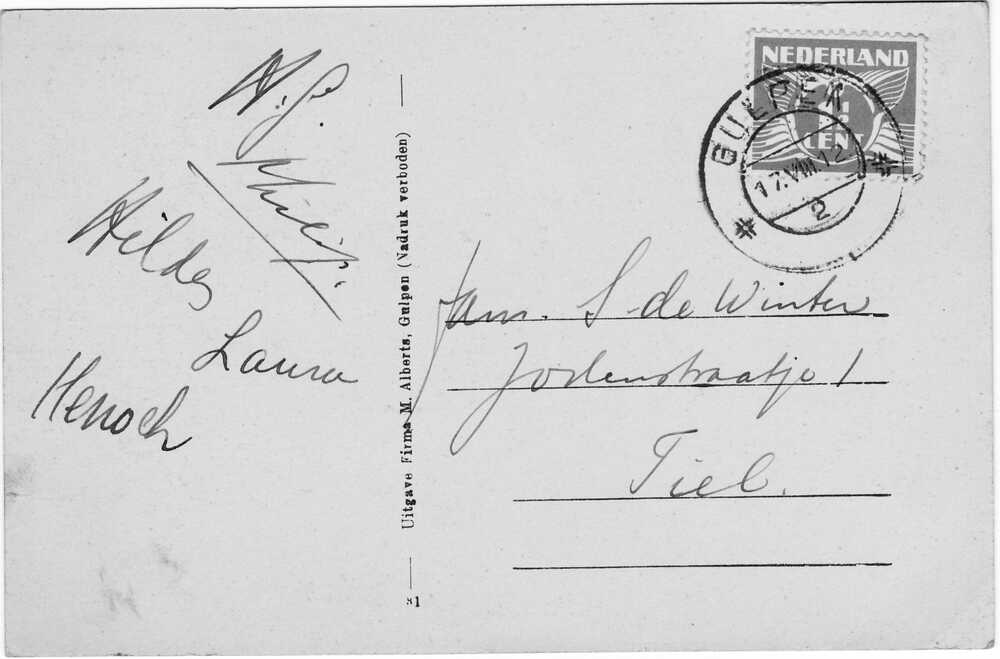 NEDERLAND
CENT
GULPEN
17.VIII.12
2
Hilde
Laura
Henoch
Uitgave Firma M. Alberts, Gulpen (Nadruk verboden)
Fam. S. de Winter
Jodenstraatje 1
Tiel.